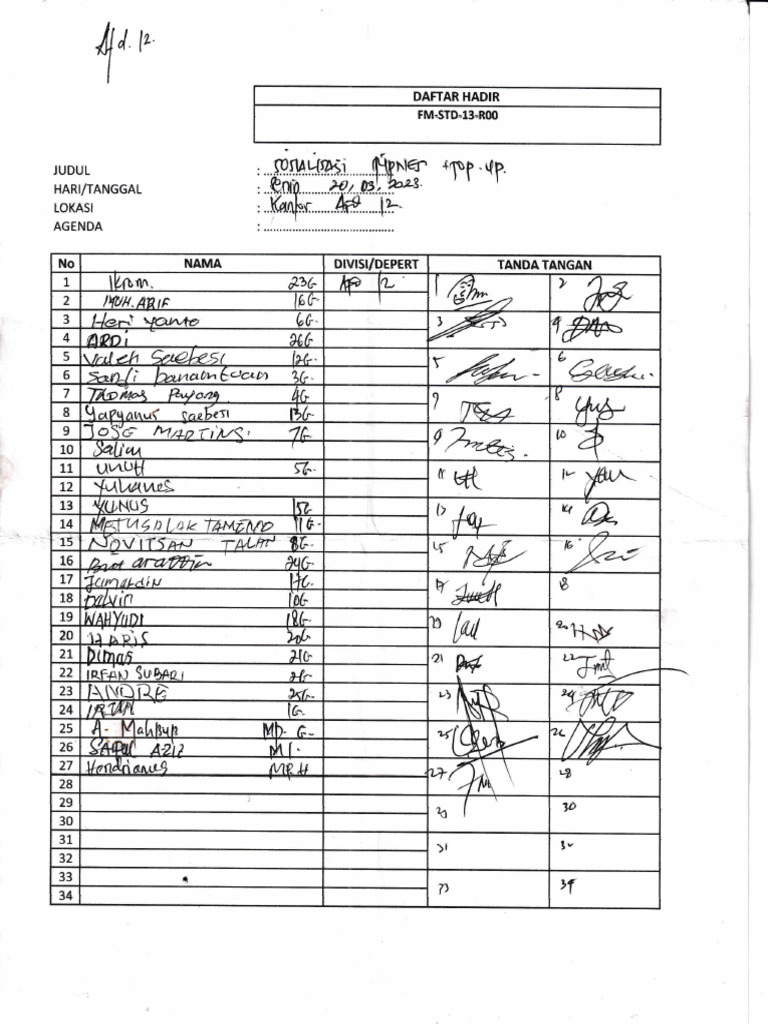 Afd. 12.
DAFTAR HADIR
FM-STD-13-R00
JUDUL : SOSIALISASI +TOP-UP.
HARI/TANGGAL : Senin 20, 03, 2023.
LOKASI : Kantor AFD 12.
AGENDA :
No NAMA DIVISI/DEPERT TANDA TANGAN
1 Ikrom. 23G AFD 12 1 2
2 MUH. ARIF 16G
3 Heri yanto 6G 3 4
4 ARDI 26G
5 Valen Saebesi 12G 5 6
6 3G
7 Thomas Payong 4G 7 8
8 Yapyanus saebesi 13G
9 JOSE MARTINS. 7G 9 10
10 Salim
11 UNUH 5G 11 12
12 Yuhanes
13 YUNUS 15G 13 14
14 METUSALAK TAMENO 11G
15 NOVITSAN TALAN 8G 15 16
16 24G
17 Jamardin 17G 17 18
18 Dalvin 10G
19 WAHYUDI 18G 19 20
20 HARIS 20G
21 Dimas 21G 21 22
22 IRFAN SUBARI 2G
23 ANDRE 25G 23 24
24 1G
25 A. Mahbub MD. G 25 26
26 AZIZ M I.
27 Hendrianus MPH 27 28
28
29 29 30
30
31 31 32
32
33 33 34
34